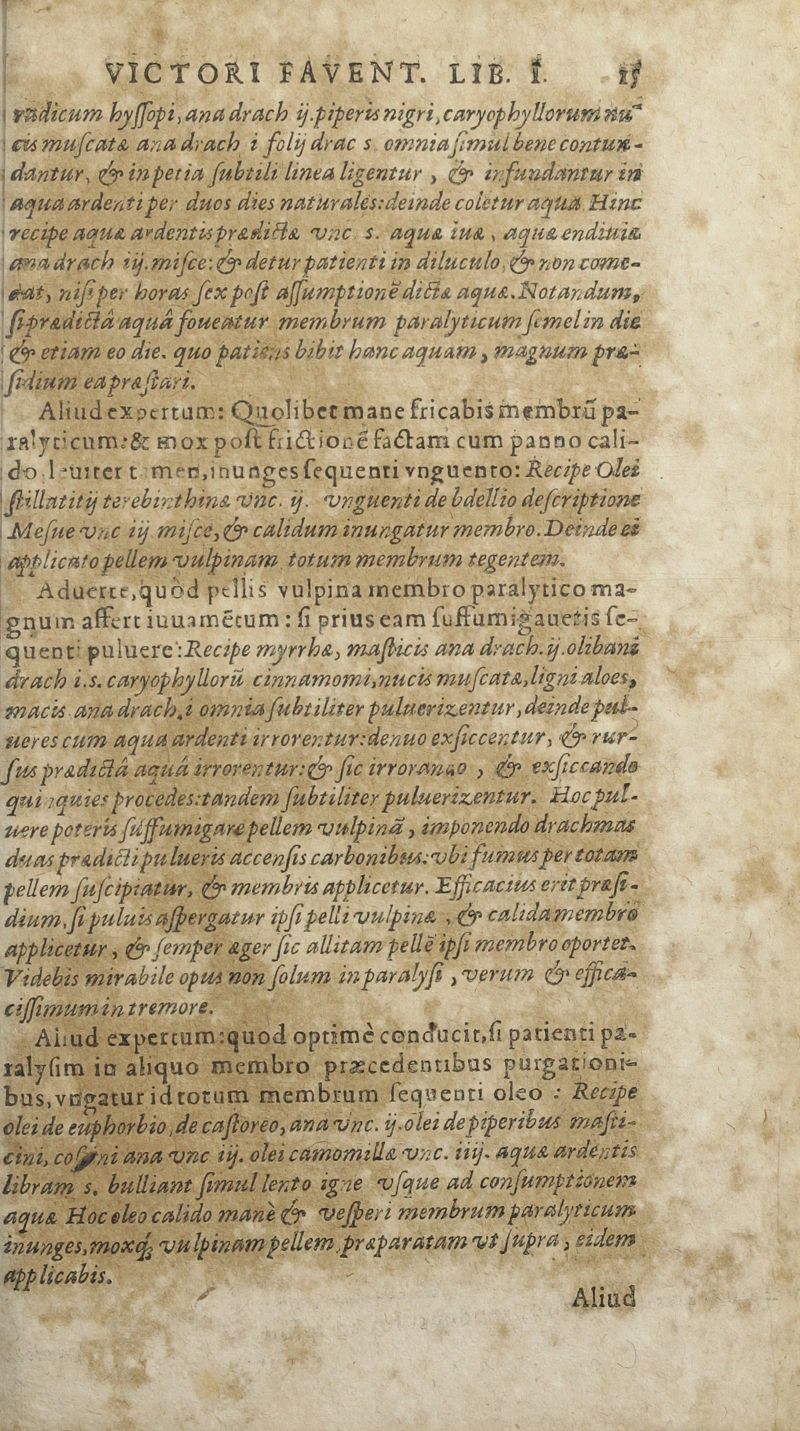 VICTORI FAVENT. LIB. I.
radicum hyſſopi, ana drach ij. piperis nigri, caryophyllorum nu-
cis muſcatæ ana drach i folij drac s. omnia ſimul bene contun-
dantur, & in petia ſubtili linea ligentur, & infundantur in
aqua ardenti per duos dies naturales: deinde coletur aqua. Hinc
recipe aquæ ardentis prædictæ vnc. s. aquæ iuæ, aquæ endiuiæ
ana drach iij. miſce: & detur patienti in diluculo, & non come-
dat, niſi per horas ſex poſt aſſumptionē dictæ aquæ. Notandum,
ſi prædictâ aquâ foueatur membrum paralyticum ſemel in die
& etiam eo die, quo patiens bibit hanc aquam, magnum præ-
ſidium ea præſtari.
Aliud expertum: Quolibet mane fricabis membrū pa-
ralyticum: & mox poſt frictionē factam cum panno cali-
do leuiter tamen, inunges ſequenti vnguento: Recipe Olei
ſtillatitij terebinthinæ vnc. ij. vnguenti de bdellio deſcriptione
Meſue vnc iij. miſce, & calidum inungatur membro. Deinde ei
applicato pellem vulpinam totum membrum tegentem.
Aduerte, quòd pellis vulpina membro paralytico ma-
gnum affert iuuamētum: ſi prius eam ſuffumigaueris ſe-
quenti puluere: Recipe myrrhæ, maſticis ana drach. ij. olibani
drach i.s. caryophyllorū cinnamomi, nucis muſcatæ, ligni aloes,
macis ana drach. i omnia ſubtiliter puluerizentur, deinde pul-
ueres cum aqua ardenti irrorentur: denuo exſiccentur, & rur-
ſus prædictâ aquâ irrorentur: & ſic irrorando, & exſiccando
quinquies procedes: tandem ſubtiliter puluerizentur. Hoc pul-
uere poteris ſuffumigare pellem vulpinā, imponendo drachmas
duas prædicti pulueris accenſis carbonibus: vbi fumus per totam
pellem ſuſcipiatur, & membris applicetur. Efficacius erit præſi-
dium, ſi puluis aſpergatur ipſi pelli vulpinæ, & calida membro
applicetur, & ſemper æger ſic allitam pellē ipſi membro oportet.
Videbis mirabile opus non ſolum in paralyſi, verum & effica-
ciſſimum in tremore.
Aliud expertum: quod optimè conducit, ſi patienti pa-
ralyſim in aliquo membro præcedentibus purgationi-
bus, vngatur id totum membrum ſequenti oleo: Recipe
olei de euphorbio, de caſtoreo, ana vnc. ij. olei de piperibus maſti-
cini, coſtini ana vnc iij. olei camomillæ vnc. iiij. aquæ ardentis
libram s. bulliant ſimul lento igne vſque ad conſumptionem
aquæ Hoc oleo calido manè & veſperi membrum paralyticum
inunges, moxq́; vulpinam pellem, præparatam vt ſupra, eidem
applicabis.
Aliud